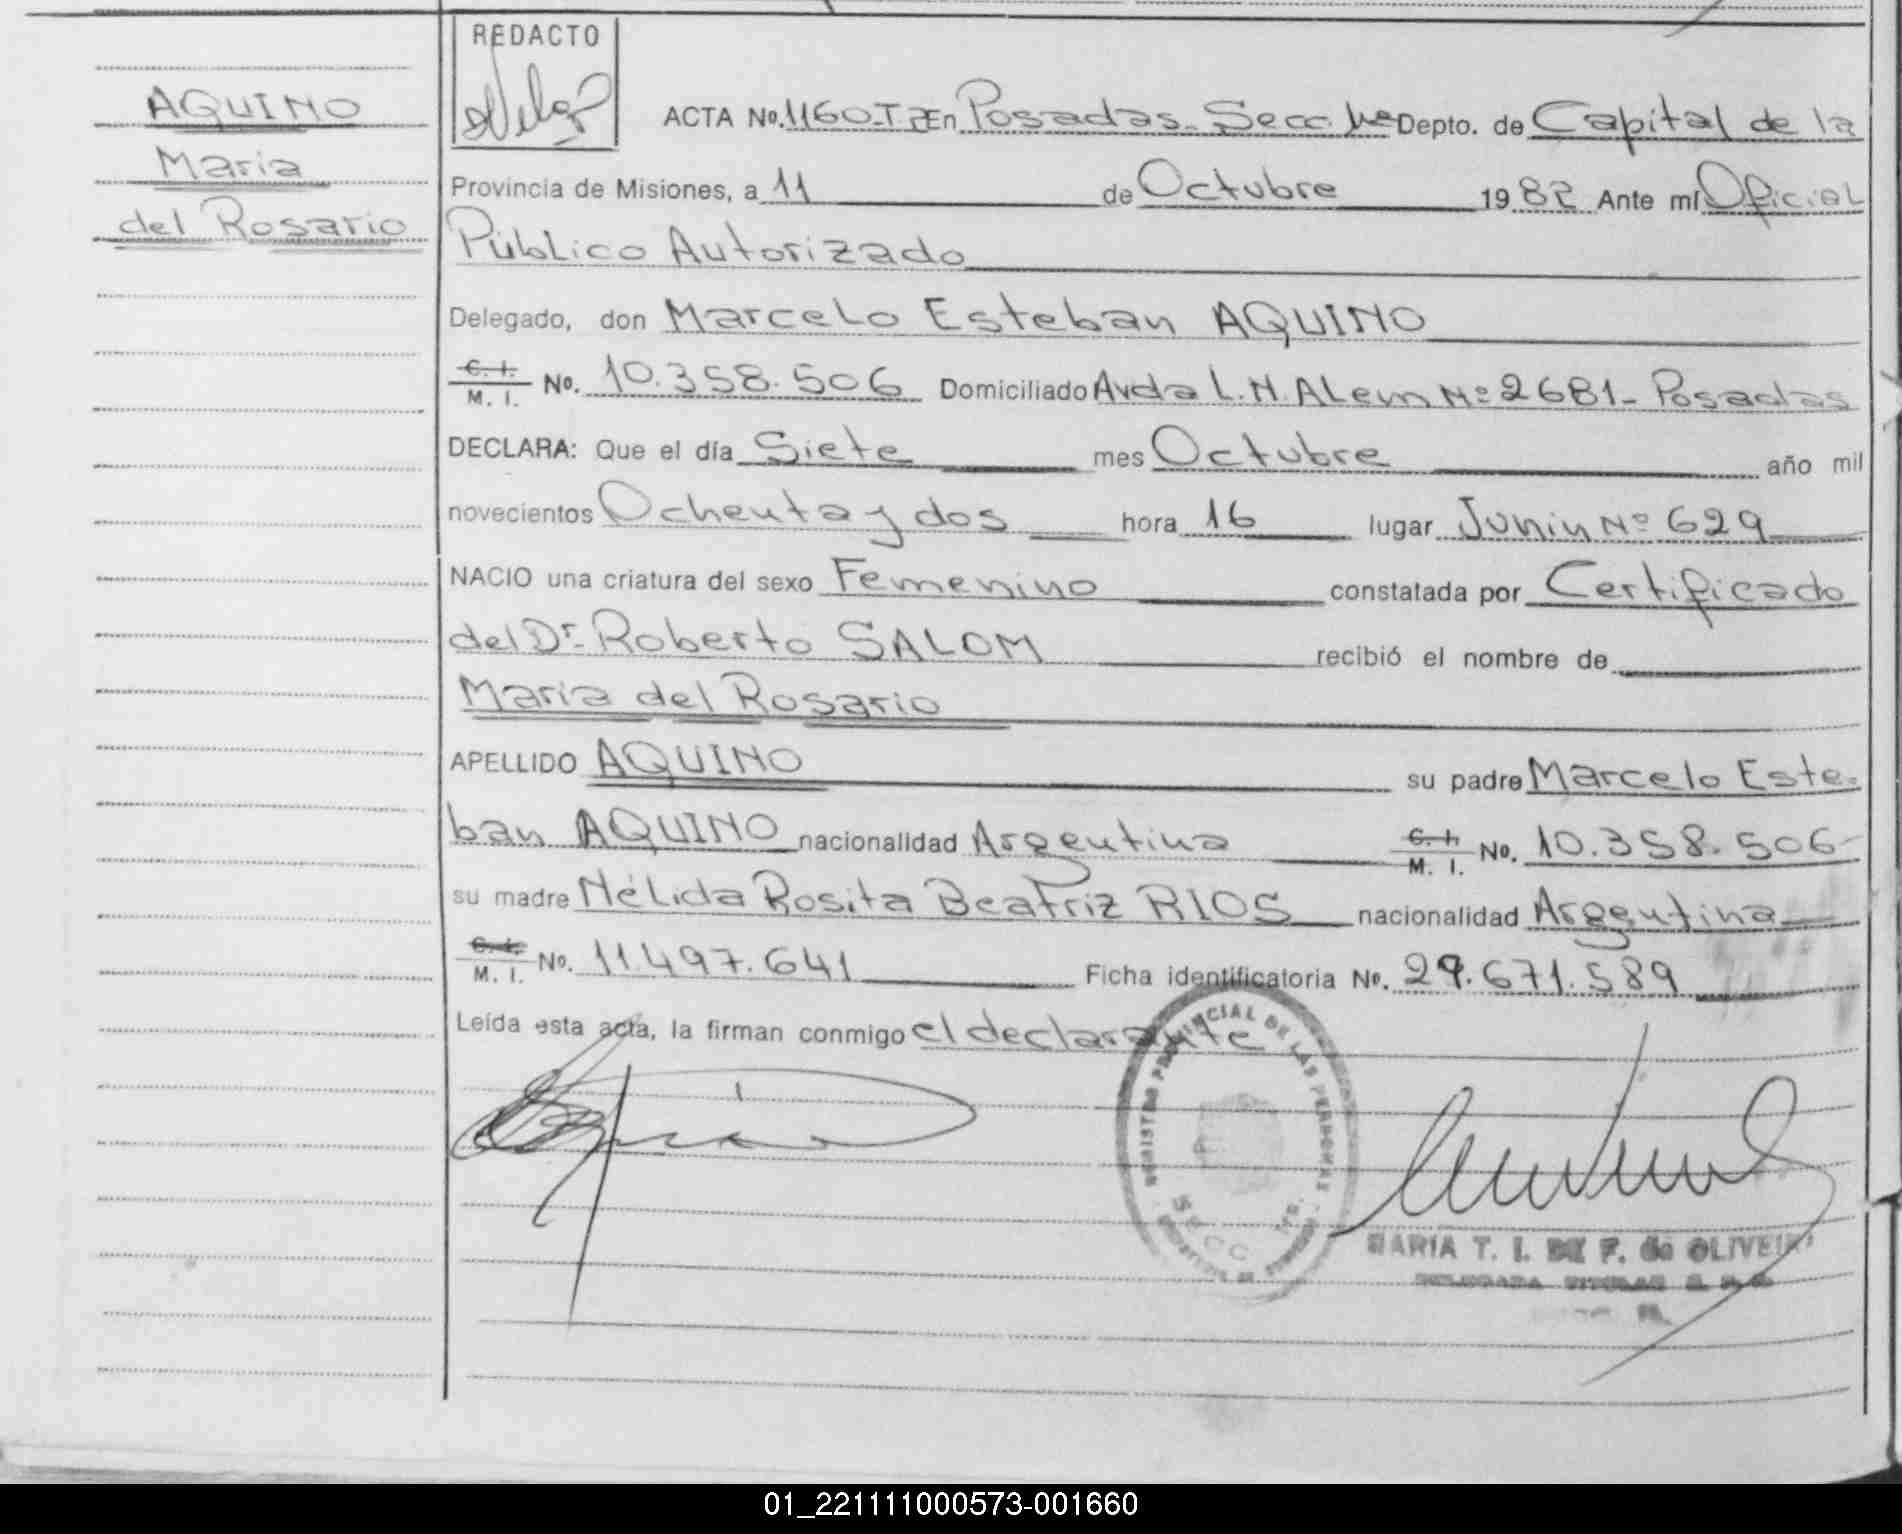 REDACTO
AQUINO
Maria
del Rosario
ACTA No. 1160-T En Posadas - Secc. Depto. de Capital de la
Provincia de Misiones, a 11 de Octubre 1982 Ante mí Oficial
Público Autorizado
Delegado, don Marcelo Esteban AQUINO
C. I. M. I. No. 10.358.506 Domiciliado Avda L. N. ALem Nº 2681 - Posadas
DECLARA: Que el día Siete mes Octubre año mil
novecientos Ochenta y dos hora 16 lugar Junin Nº 629
NACIO una criatura del sexo Femenino constatada por Certificado
del Dr. Roberto SALOM recibió el nombre de
Maria del Rosario
APELLIDO AQUINO su padre Marcelo Este-
ban AQUINO nacionalidad Argentina C. I. M. I. No. 10.358.506-
su madre Nélida Rosita Beatriz RIOS nacionalidad Argentina
C. I. M. I. No. 11.497.641 Ficha identificatoria No. 29.671.589
Leída esta acta, la firman conmigo el declarante
REGISTRO PROVINCIAL DE LAS PERSONAS
SECC.
MARIA T. I. DE F. de OLIVEIRA
DELEGADA TITULAR
01_221111000573-001660